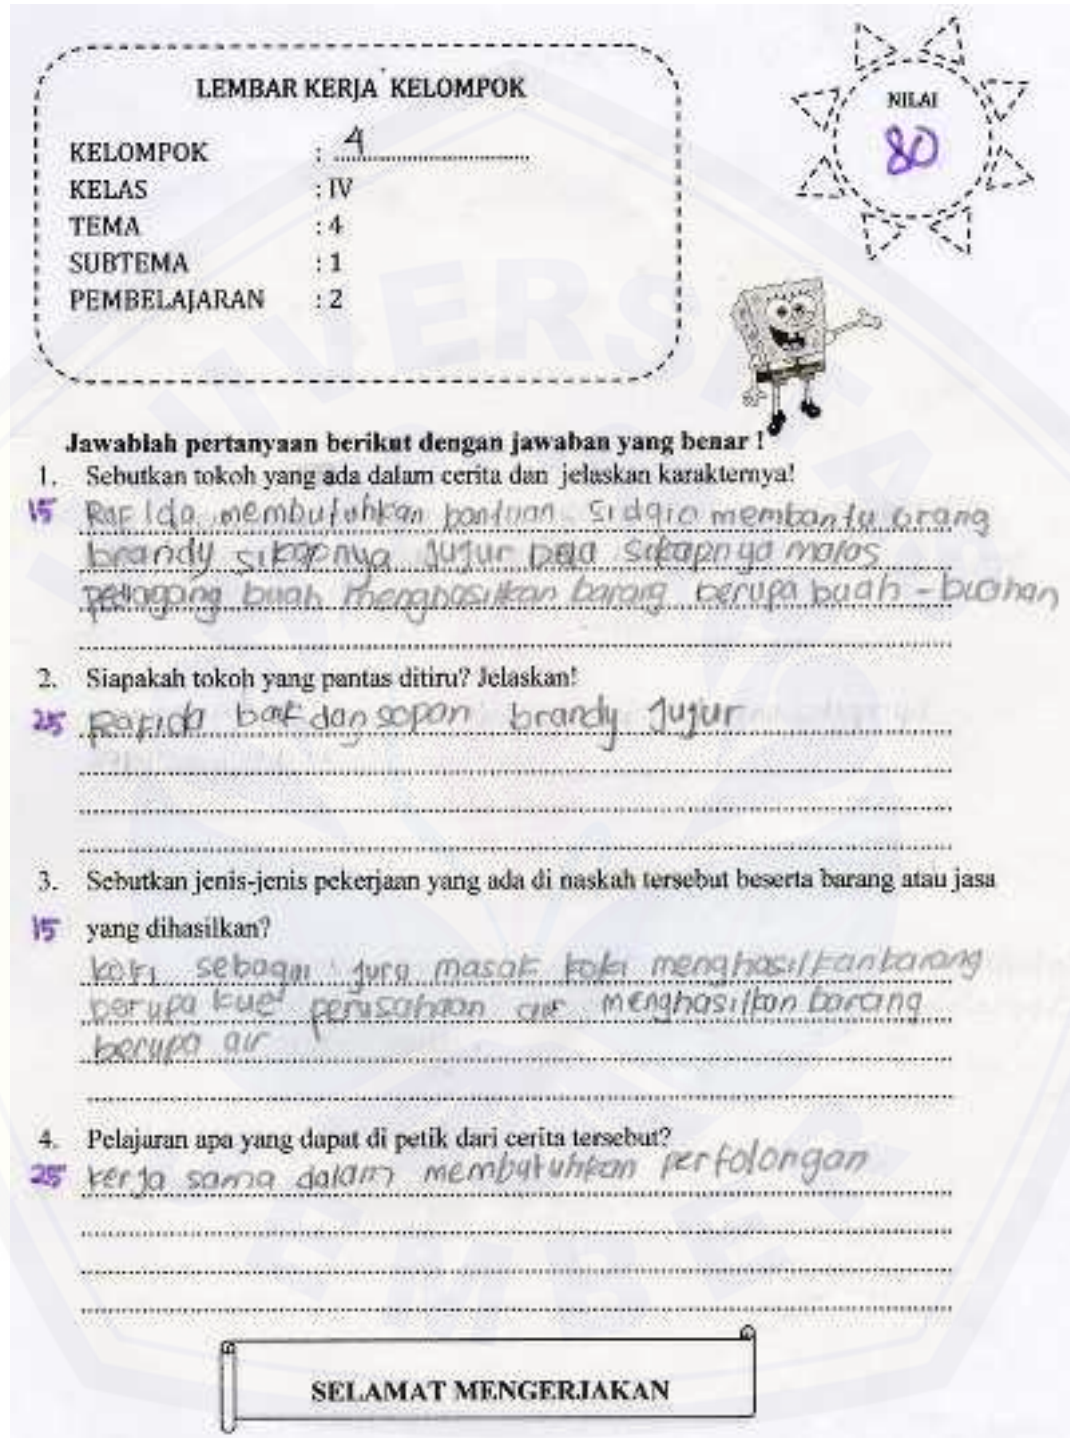 LEMBAR KERJA KELOMPOK
NILAI
80
KELOMPOK : 4
KELAS : IV
TEMA : 4
SUBTEMA : 1
PEMBELAJARAN : 2
Jawablah pertanyaan berikut dengan jawaban yang benar !
1. Sebutkan tokoh yang ada dalam cerita dan jelaskan karakternya!
15 Rafida membutuhkan bantuan Sidqio membantu orang
brandy sikapnya jujur sikapnya malas
pedagang buah menghasilkan barang berupa buah - buahan
2. Siapakah tokoh yang pantas ditiru? Jelaskan!
25 Rafida baik dan sopan brandy jujur
3. Sebutkan jenis-jenis pekerjaan yang ada di naskah tersebut beserta barang atau jasa
15 yang dihasilkan?
koki sebagai juru masak koki menghasilkan barang
berupa kue perusahaan air menghasilkan barang
berupa air
4. Pelajaran apa yang dapat di petik dari cerita tersebut?
25 kerja sama dalam membutuhkan pertolongan
SELAMAT MENGERJAKAN
UNIVERSITAS
JEMBER